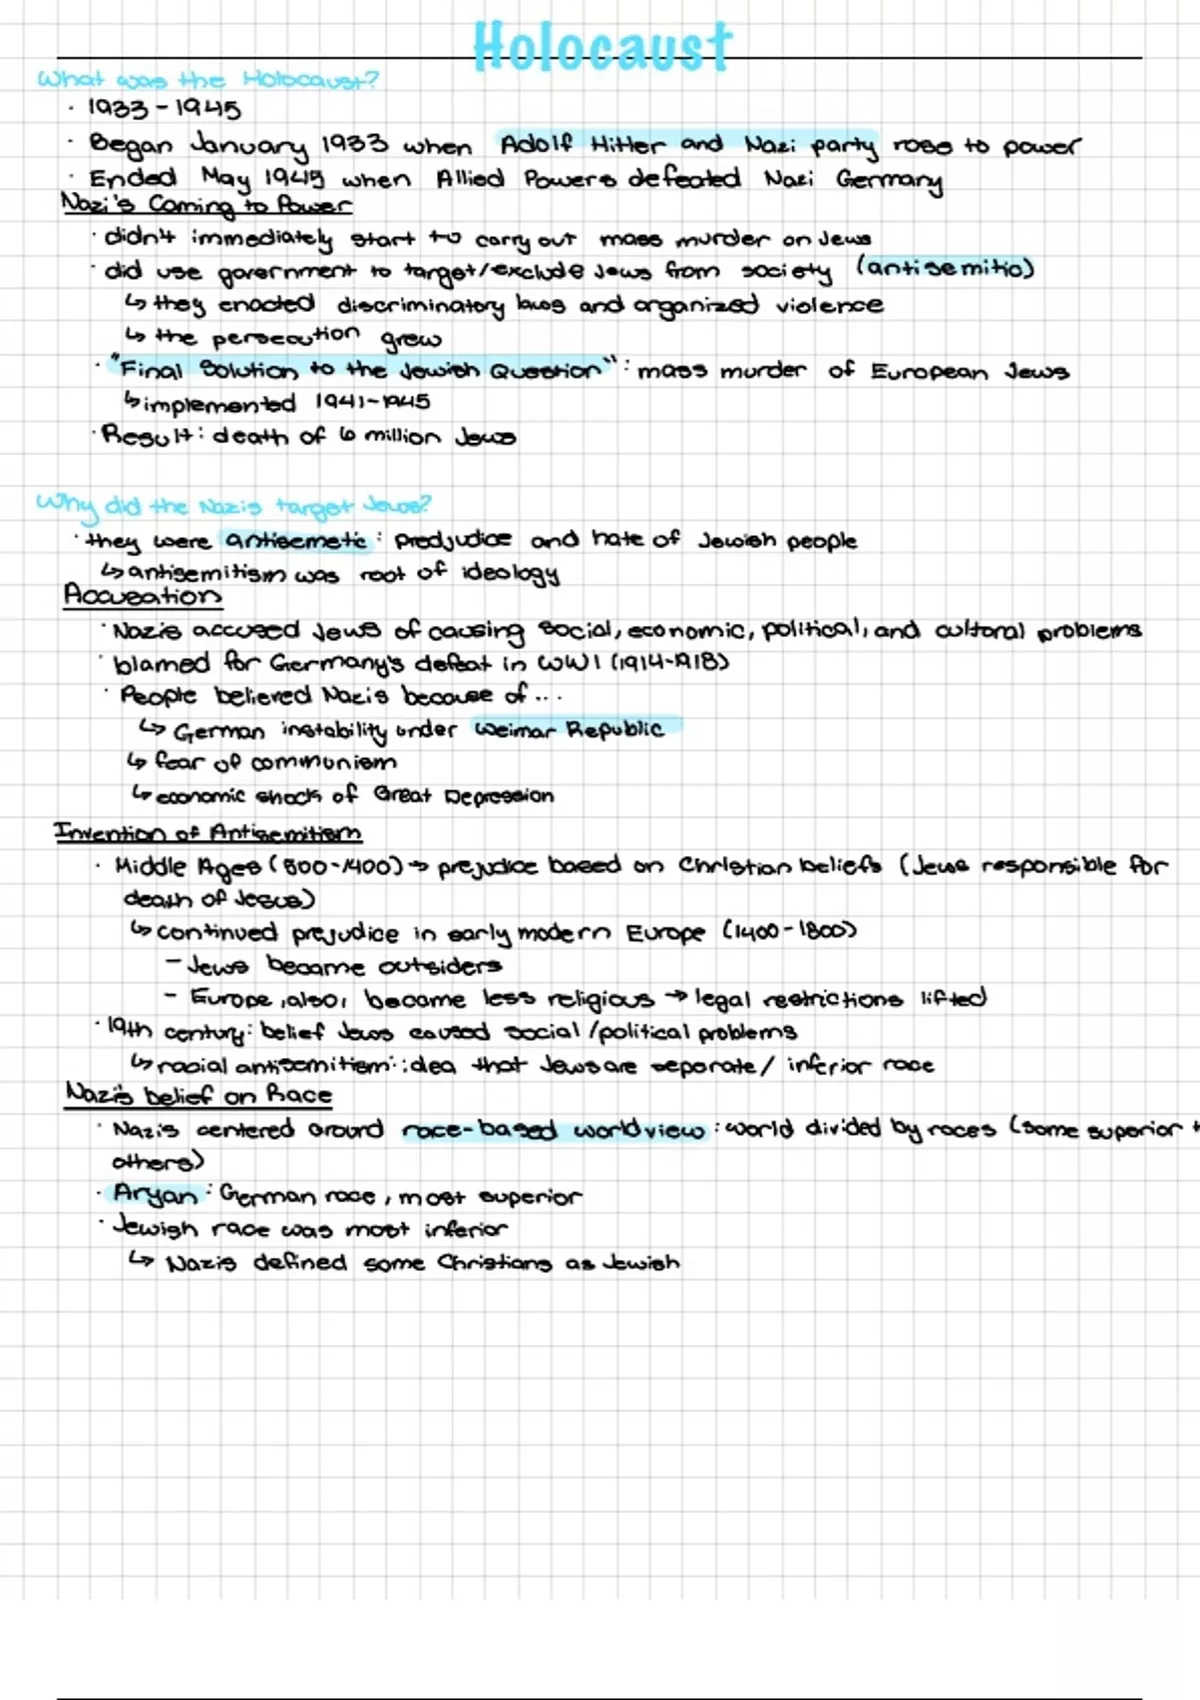 Holocaust
What was the Holocaust?
· 1933-1945
· Began January 1933 when Adolf Hitler and Nazi party rose to power
· Ended May 1945 when Allied Powers defeated Nazi Germany
Nazi's Coming to Power
· didn't immediately start to carry out mass murder on Jews
· did use government to target/exclude Jews from society (antisemitic)
↳ they enacted discriminatory laws and organized violence
↳ the persecution grew
· "Final Solution to the Jewish Question": mass murder of European Jews
↳ implemented 1941-1945
· Result: death of 6 million Jews
Why did the Nazis target Jews?
· they were antisemetic: predjudice and hate of Jewish people
↳ antisemitism was root of ideology
Accusation
· Nazis accused Jews of causing social, economic, political, and cultural problems
· blamed for Germany's defeat in WW1 (1914-1918)
· People believed Nazis because of...
↳ German instability under Weimar Republic
↳ fear of communism
↳ economic shock of Great Depression
Invention of Antisemitism
· Middle Ages (500-1400) → prejudice based on Christian beliefs (Jews responsible for
death of Jesus)
↳ continued prejudice in early modern Europe (1400-1800)
- Jews became outsiders
- Europe, also, became less religious → legal restrictions lifted
· 19th century: belief Jews caused social/political problems
↳ racial antisemitism: idea that Jews are seperate/ inferior race
Nazi's belief on Race
· Nazis centered around race-based worldview: world divided by races (some superior
others)
· Aryan: German race, most superior
· Jewish race was most inferior
↳ Nazis defined some Christians as Jewish